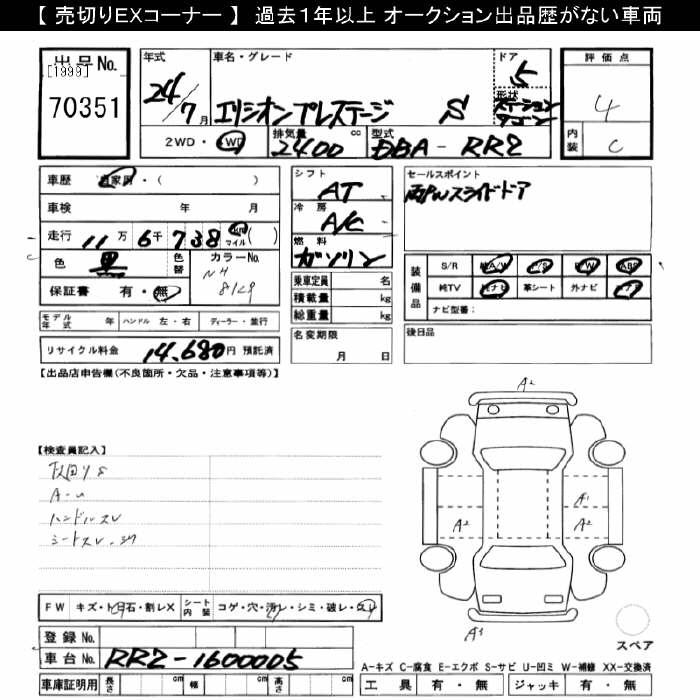 【 売切りEXコーナー 】 過去１年以上 オークション出品歴がない車両
出品No.
[1999]
70351
年式
24/7月
車名・グレード
エリシオンプレステージ S
ドア
5
形状
ステーションワゴン
評価点
4
内装
C
2WD・4WD
排気量
2400 cc
型式
DBA- RR2
車歴 自家用・( )
車検 年 月
走行 11万6千738 km マイル ( )
色 黒
色替
カラーNo.
NH
812P
保証書 有・無
シフト
AT
冷房
A/C
燃料
ガソリン
乗車定員 名
積載量 kg
総重量 kg
セールスポイント
両PWスライドドア
装備品
S/R 純A/W P/S P/W ABS
純TV 純ナビ 革シート 外ナビ エアB
ナビ型番：
モデル年式 年 ハンドル 左・右 ディーラー・並行
リサイクル料金 14,680円 預託済
名変期限
月 日
後日品
【出品店申告欄(不良箇所・欠品・注意事項等)】
【検査員記入】
下回りS
A-U
ハンドルスレ
シートスレ・シワ
A2
A1
A2
A2
A3
スペア
FW キズ・ト石・割レX
シート内装 コゲ・穴・汚レ・シミ・破レ・スレ
登録No.
車台No. RR2-1600005
車庫証明用 長さ cm 幅 cm 高さ cm
A-キズ C-腐食 E-エクボ S-サビ U-凹ミ W-補修 XX-交換済
工具 有・無 ジャッキ 有・無